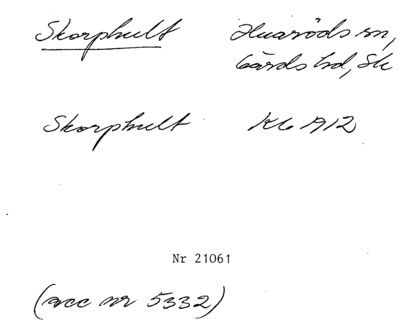 Skorphult Huaröds sn,
Gärds hd, Sk
Skorphult Kb 1912
Nr 21061
(acc nr 5332)